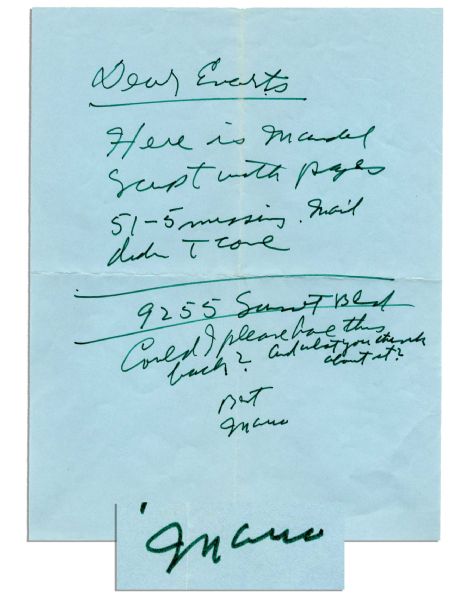 Dear Evarts
Here is Mandel
Script with pages
51-5 missing. Mail
didn T come
9255 Sunset Blvd
Could I please have this
back? And what you think
about it?
Best
Mario
Mario